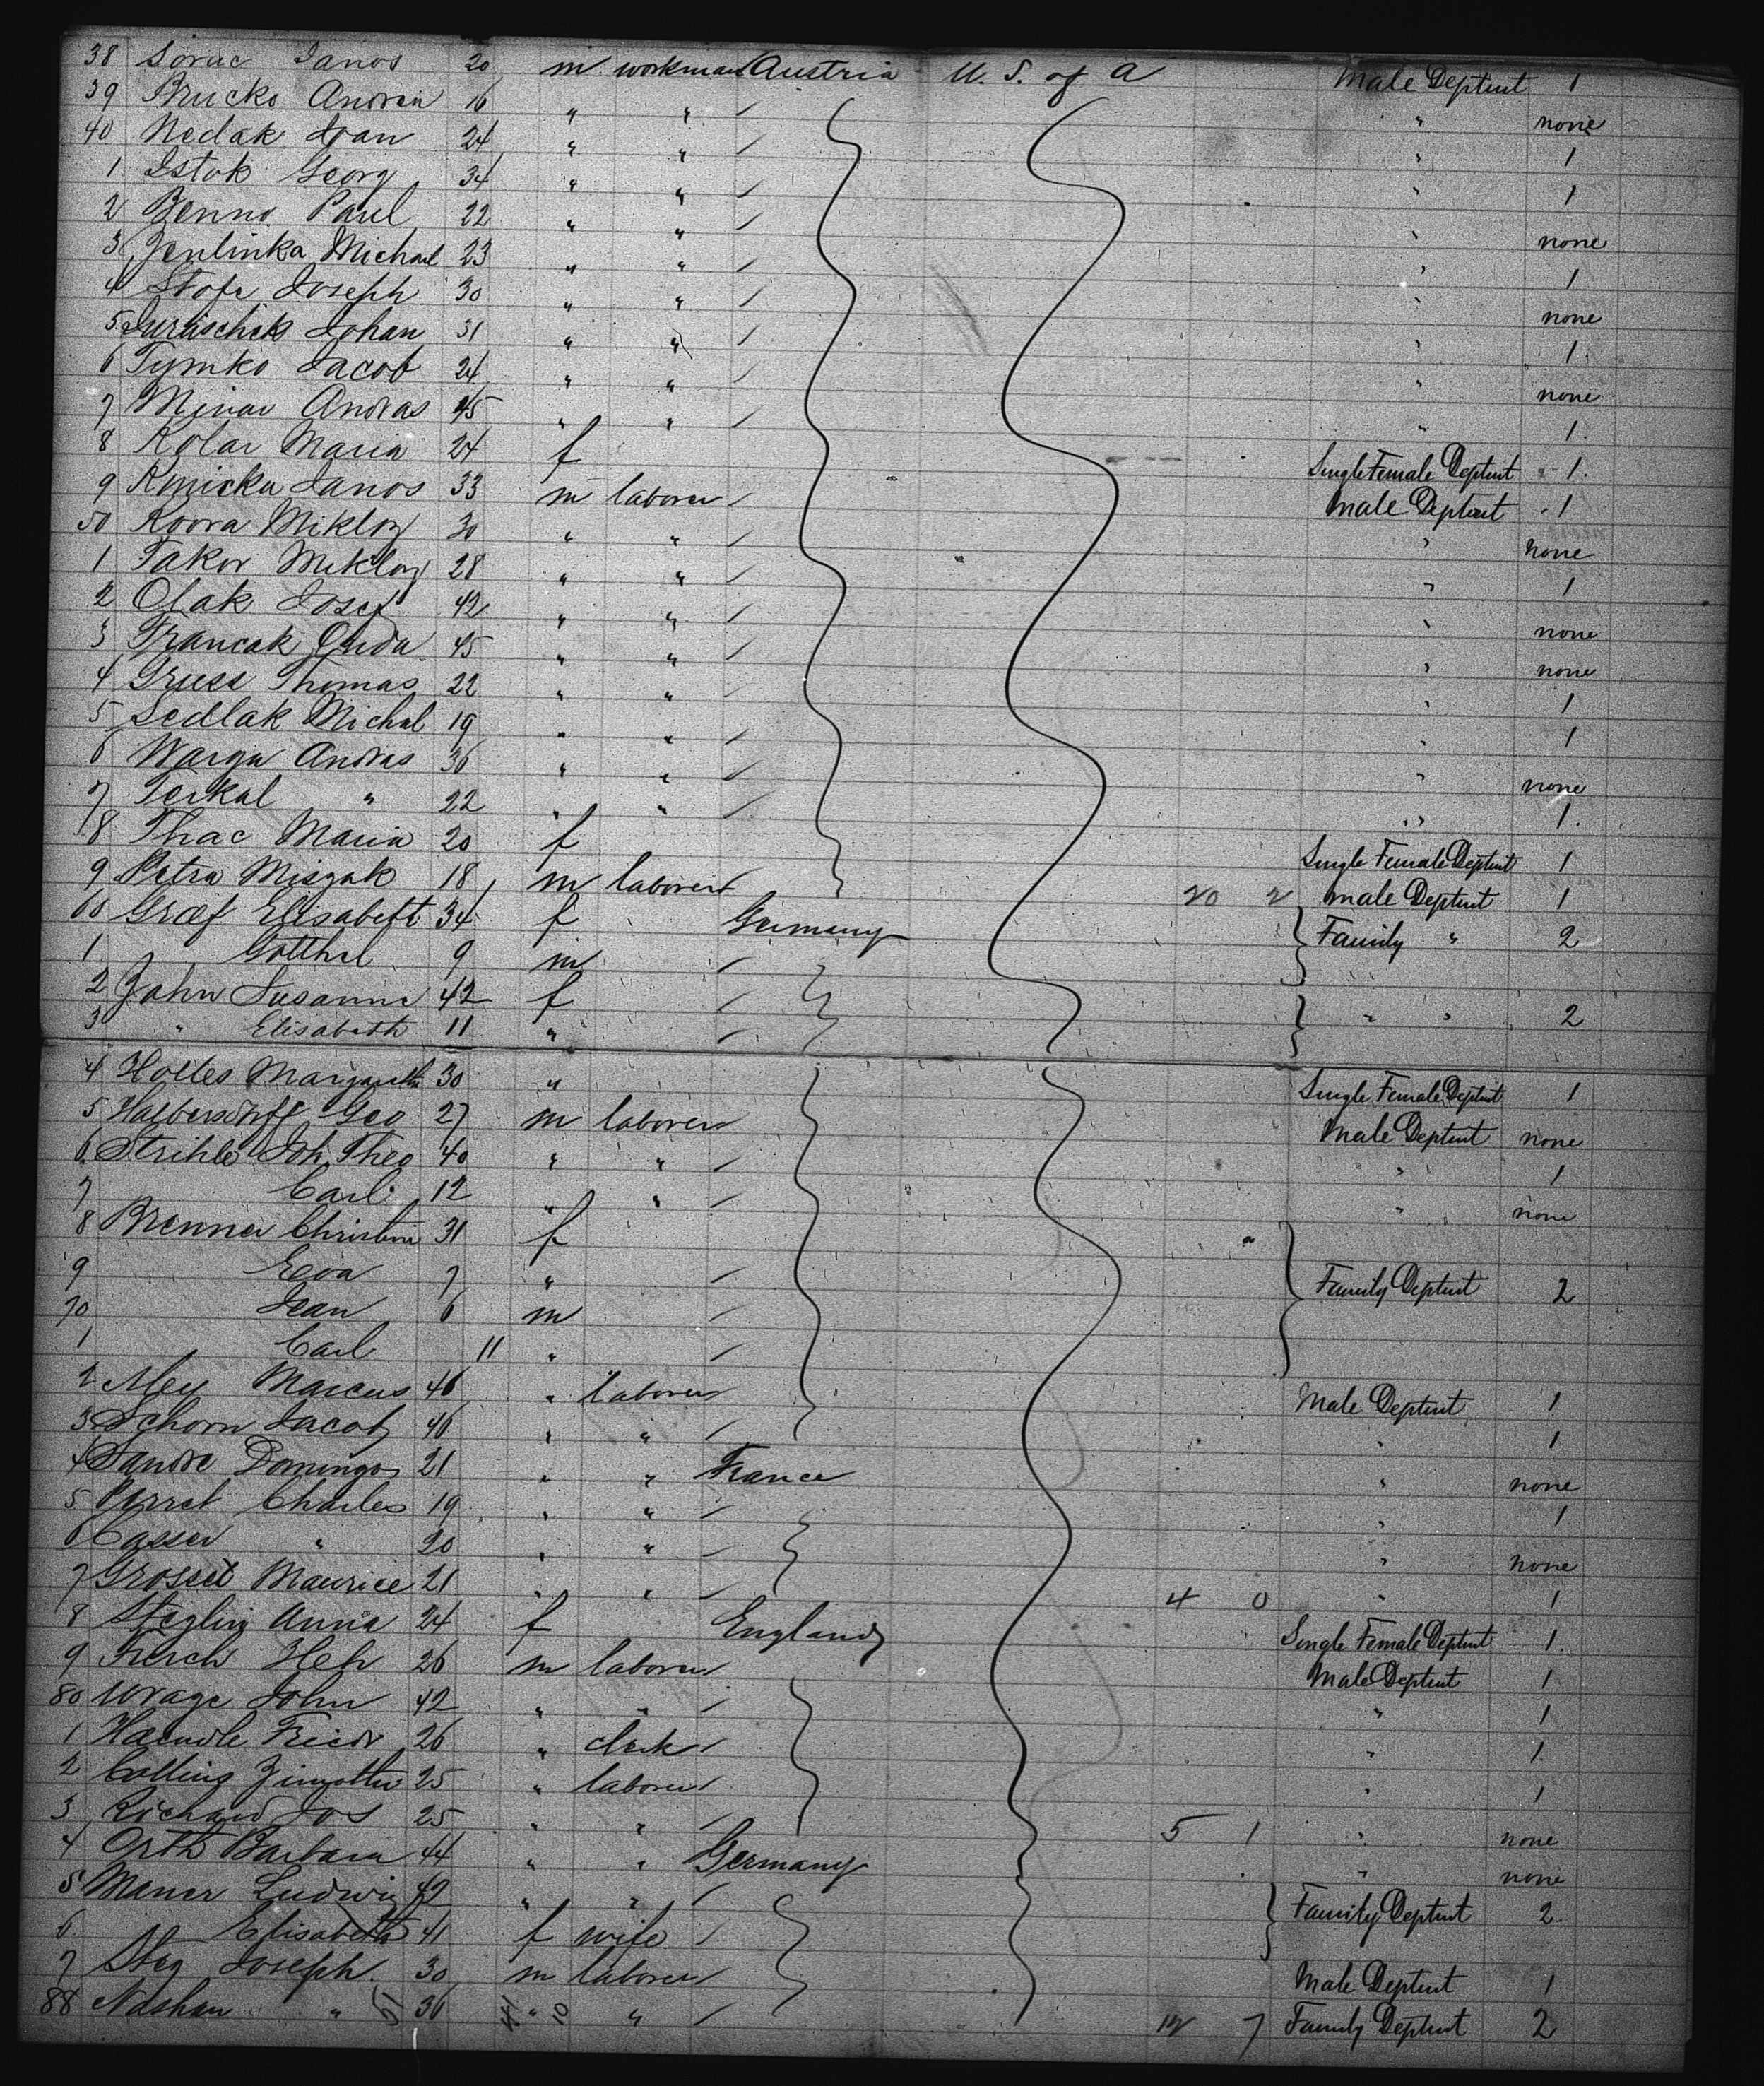 38 Soruc Janos 20 m workman Austria U. S. of a Male Deptmt 1
39 Brucko Andrea 16 " " none
40 Nedak Ivan 24 " " " 1
1 Istok Georg 34 " " " 1
2 Benno Paul 22 " " " none
3 Michael 23 " " " 1
4 Joseph 30 " " " none
5 Juraschek Johan 31 " " " 1
6 Tymko Jacob 24 " " " none
7 Minar Andras 45 " " " 1.
8 Kolar Maria 24 f Single Female Deptmt 1.
9 Janos 33 m laborer Male Deptmt 1
50 Miklos 30 " " " none
1 Takov Miklos 28 " " " 1
2 Olak Josef 42 " " " none
3 Francak 45 " " " none
4 Thomas 22 " " " 1
5 Sedlak Michal 19 " " " 1
6 Warga Andras 36 " " " none
7 Terkal " 22 " " " 1.
8 Thac Maria 20 f Single Female Deptmt 1
9 Petra Miszak 18 m laborer 20 2 Male Deptmt 1
60 Graef Elisabeth 34 f Germany Family " 2
1 9 m
2 Jahn Susanna 42 f " " 2
3 " Elisabeth 11 "
4 Holles Margaretha 30 " Single Female Deptmt 1
5 Halbersdorff Geo 27 m laborer Male Deptmt none
6 Strihle Joh. Theo 40 " " " 1
7 Carl 12 " " " none
8 Brenner Christine 31 f
9 Eva 7 " Family Deptmt 2
70 Jean 6 m
1 Carl 11 "
2 Marcus 46 " laborer Male Deptmt 1
3 Schorn Jacob 46 " " " 1
4 Sandre Domingos 21 " " France " none
5 Charles 19 " " " 1
6 Casser " 20 " " " none
7 Grosset Maurice 21 " " 4 0 " 1
8 Steglin Anna 24 f England Single Female Deptmt 1.
9 Hch 26 m laborer Male Deptmt 1
80 Wrage John 42 " " " 1
1 Haendle Friedr 26 " clerk " 1.
2 Collins 25 " laborer " 1
3 Richard Jos 25 " " 5 1 " none
4 Orth Barbara 44 " " Germany " none
5 Ludwig 42 " " Family Deptmt 2.
6. Elisabeth 41 f wife
7 Steg Joseph. 30 m laborer Male Deptmt 1
88 Nashan " 36 " 10 " 12 7 Family Deptmt 2